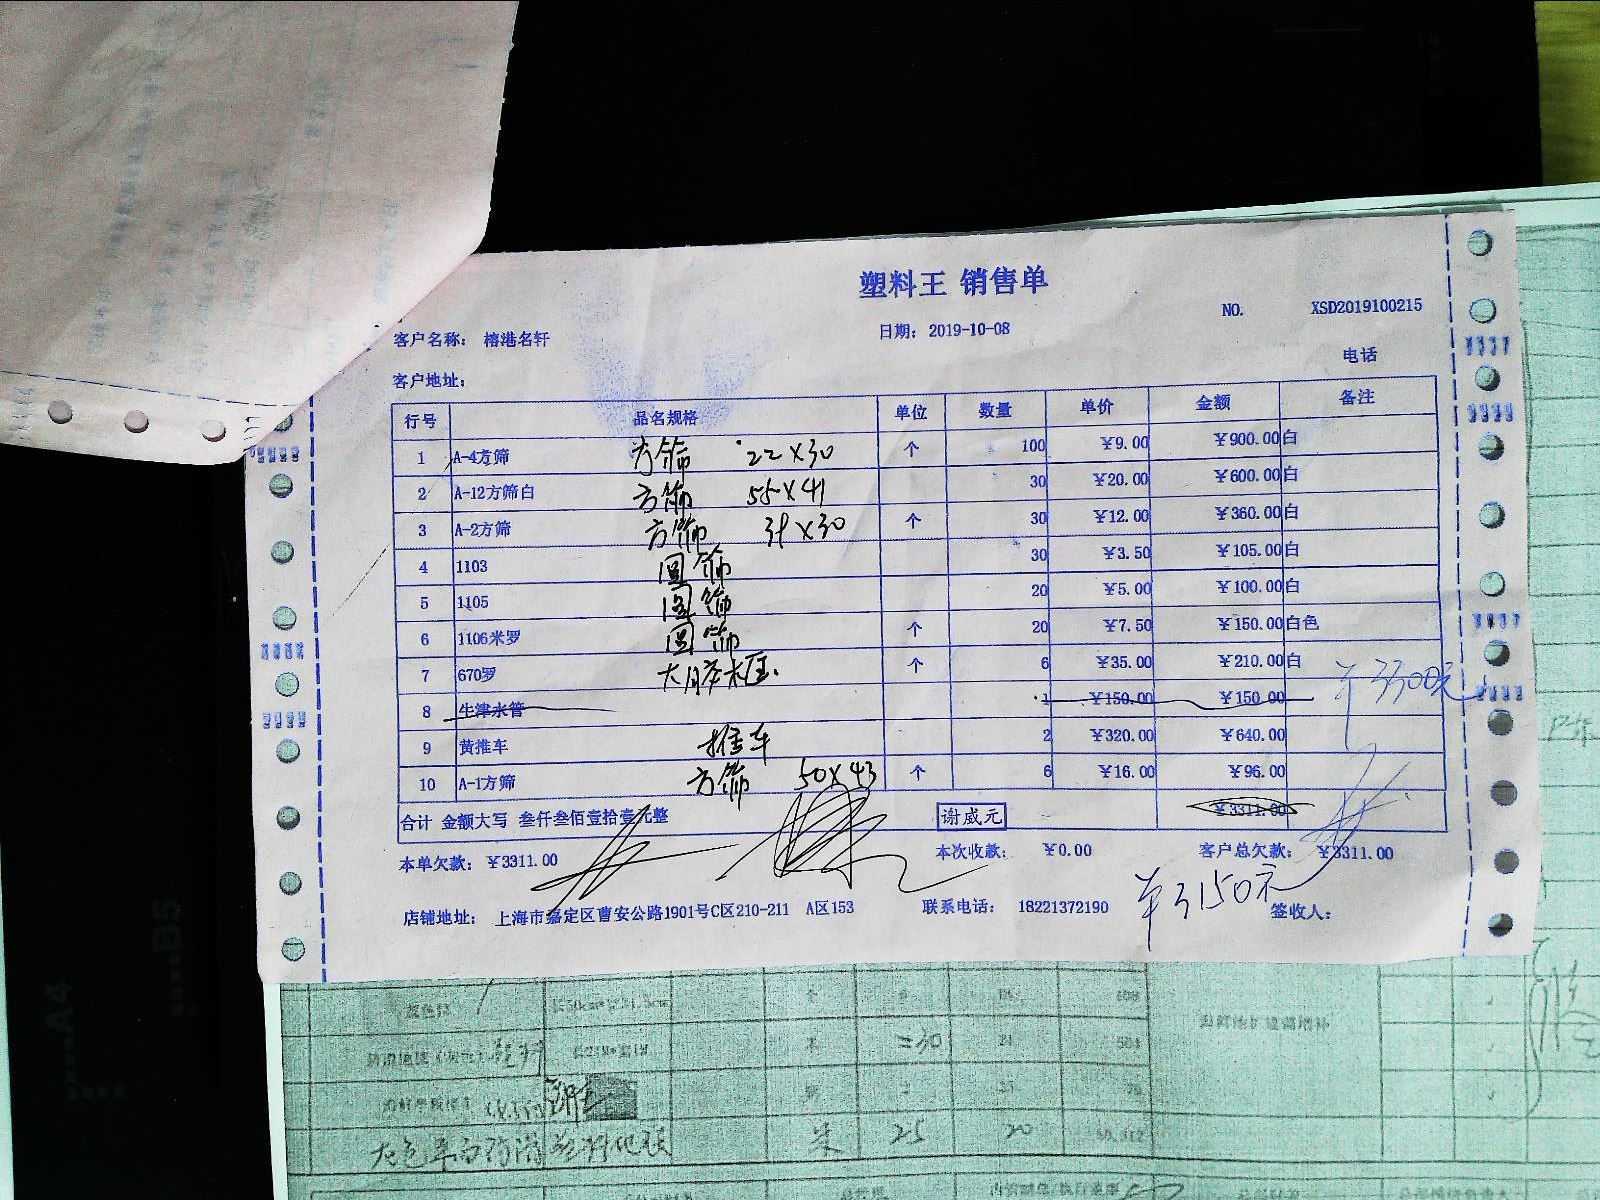 塑料王 销售单
NO. XSD2019100215
客户名称: 榕港名轩 日期: 2019-10-08
电话
客户地址:
行号 品名规格 单位 数量 单价 金额 备注
1 A-4方筛 方筛 22×30 个 100 ¥9.00 ¥900.00 白
2 A-12方筛白 方筛 55×41 30 ¥20.00 ¥600.00 白
3 A-2方筛 方筛 39×30 个 30 ¥12.00 ¥360.00 白
4 1103 圆筛 30 ¥3.50 ¥105.00 白
5 1105 圆筛 20 ¥5.00 ¥100.00 白
6 1106米罗 圆筛 个 20 ¥7.50 ¥150.00 白色
7 670罗 个 6 ¥35.00 ¥210.00 白
¥3300元
8 牛津水管 1 ¥150.00 ¥150.00
9 黄推车 推车 2 ¥320.00 ¥640.00
10 A-1方筛 方筛 50×43 个 6 ¥16.00 ¥96.00
合计 金额大写 叁仟叁佰壹拾壹元整 谢威元 ¥3311.00
本单欠款: ¥3311.00 本次收款: ¥0.00 客户总欠款: ¥3311.00
¥3150元
店铺地址: 上海市嘉定区曹安公路1901号C区210-211 A区153 联系电话: 18221372190 签收人:
A4
B5
=30
25 20